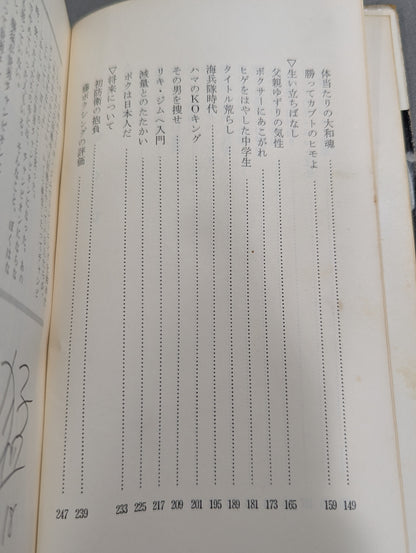 体当たりの大和魂 149
勝ってカブトのヒモよ 159
▽生い立ちばなし
父親ゆずりの気性 165
ボクサーにあこがれ 173
ヒゲをはやした中学生 181
タイトル荒らし 189
海兵隊時代 195
ハマのKOキング 201
その男を捜せ 209
リキ・ジムへ入門 217
減量とのたたかい 225
ボクは日本人だ 233
▽将来について
初防衛の抱負 239
藤ボクシングの評価 247